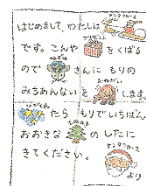 サンタクロース
はじめまして、わたしは
です。こんや をくばる
ので さんに もりの
みちあんないを します。
たら もりでいちばん
おおきな のしたに
きてください。
サンタクロース
より